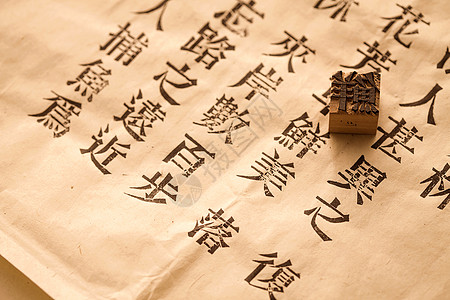 人捕魚爲
忘路之遠近
夾岸數百步
花芳鮮美落
人甚異之復
林